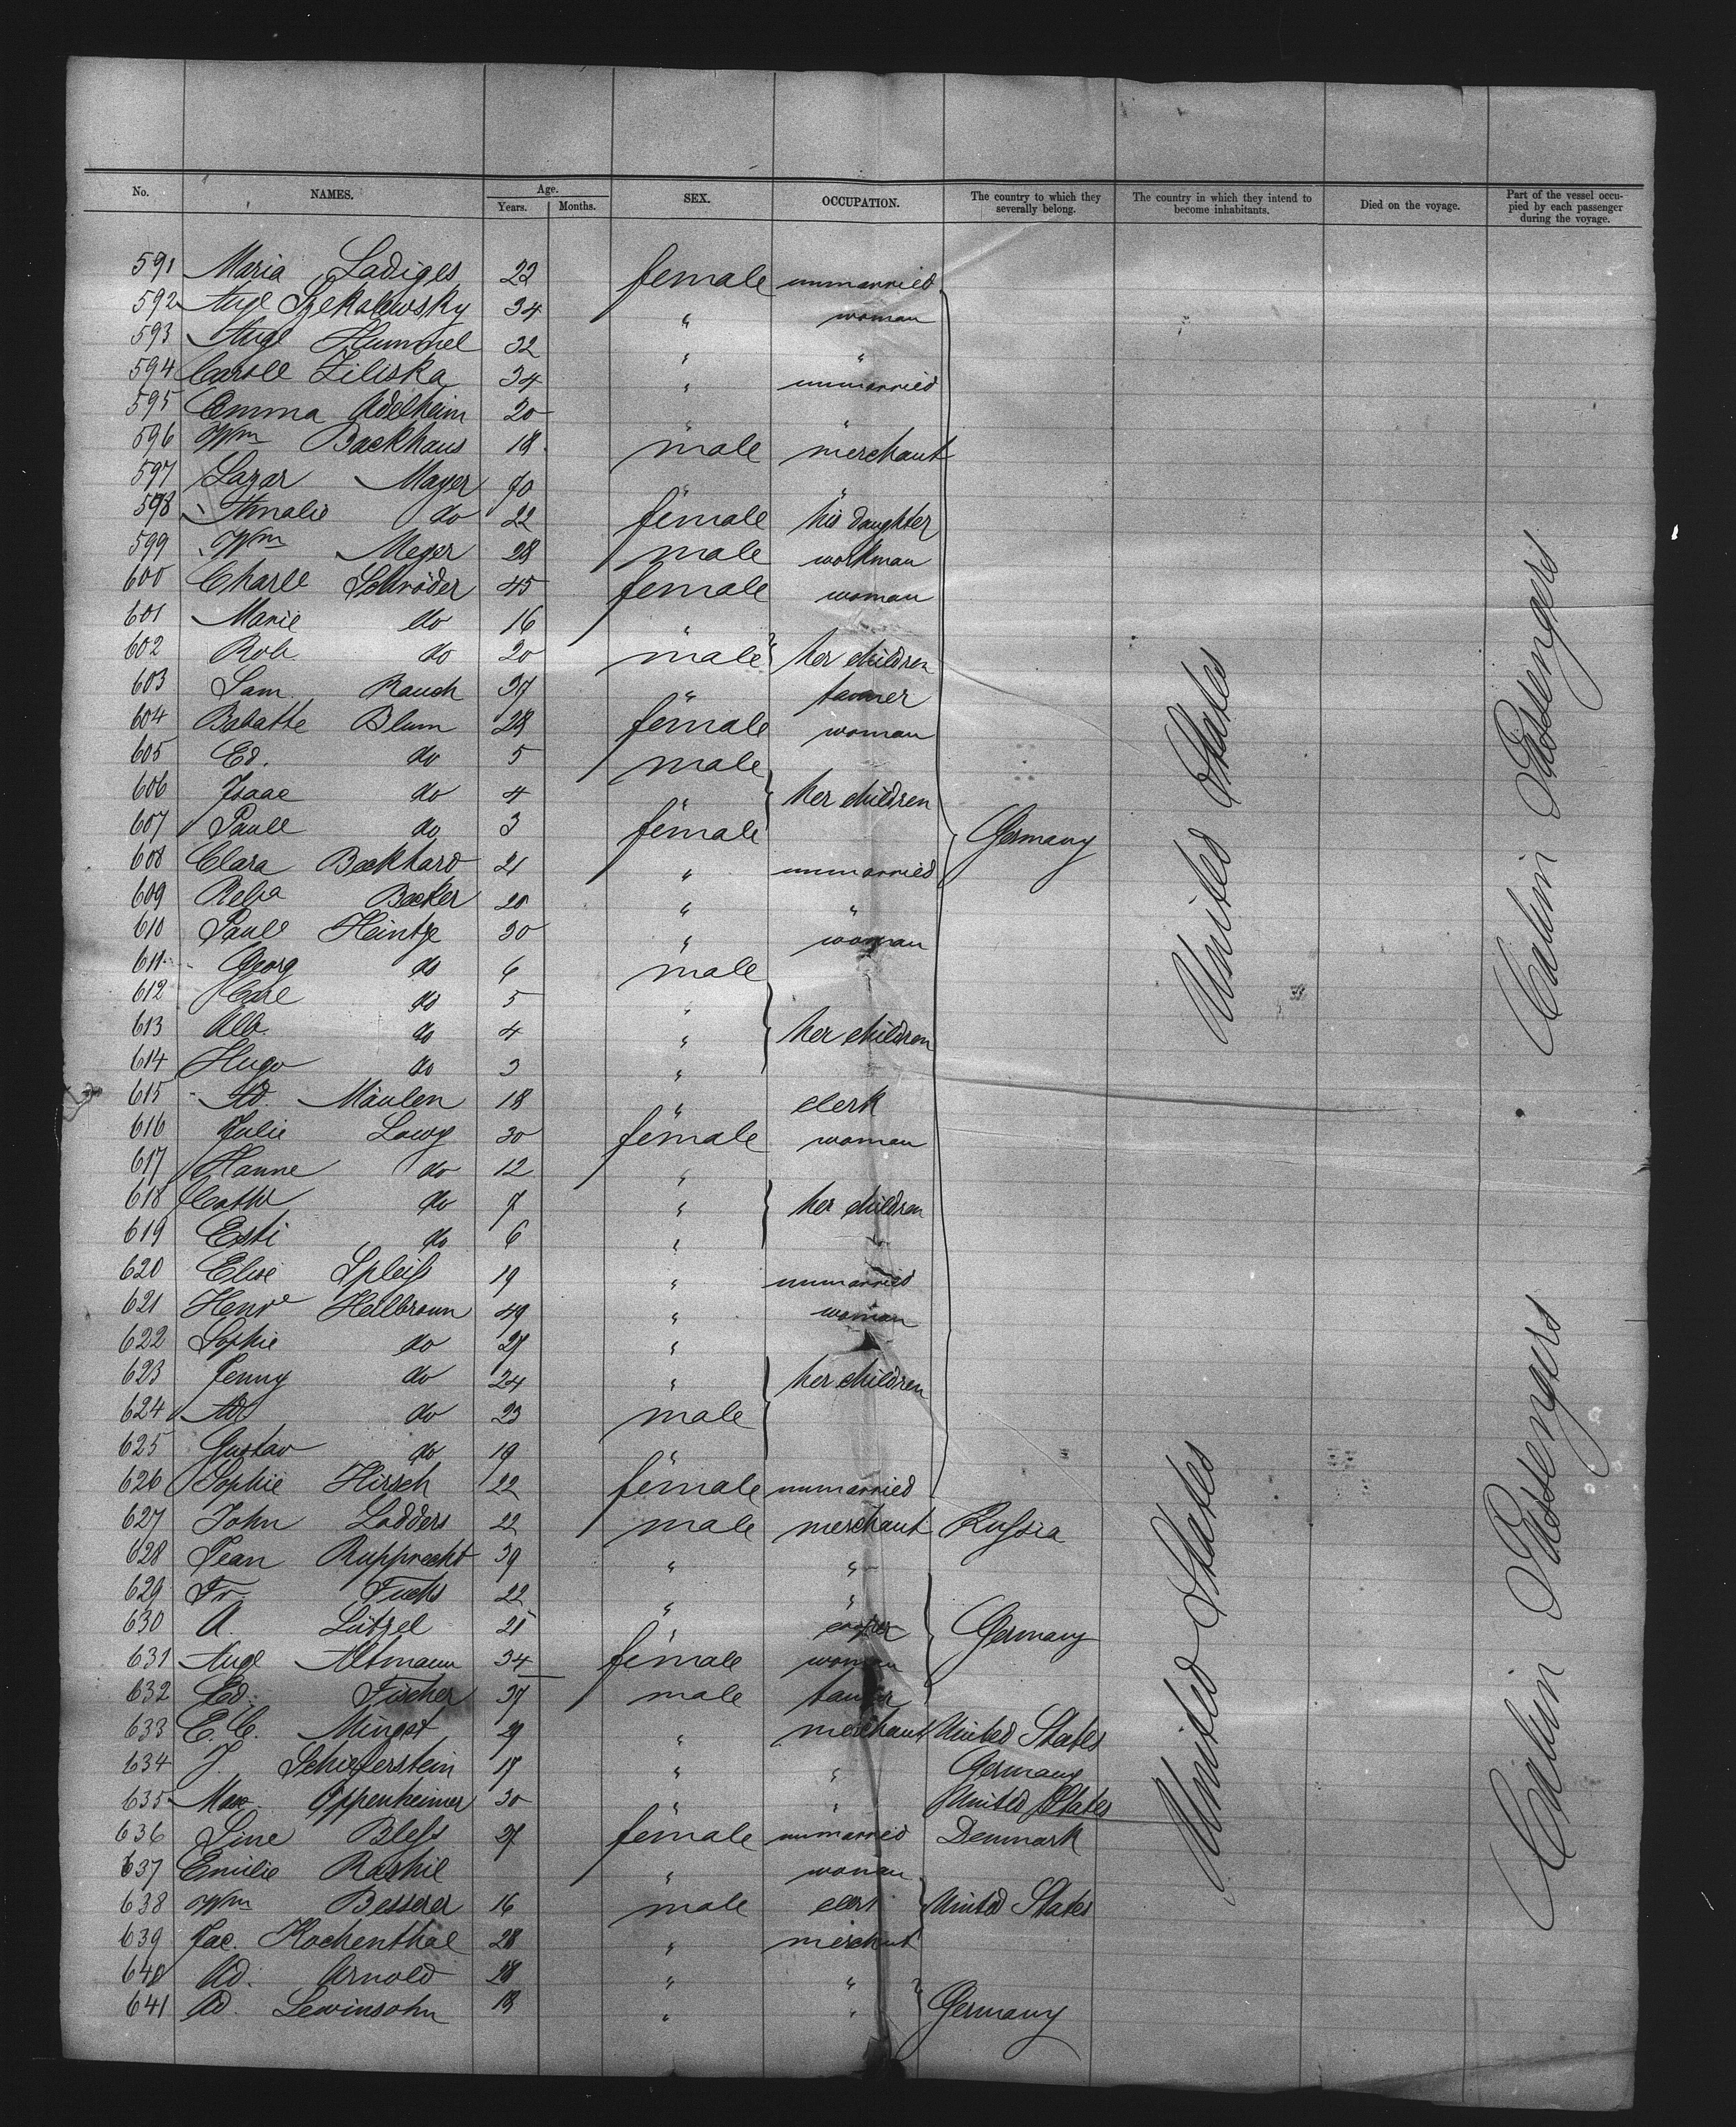 No. NAMES. Age. Years. Months. SEX. OCCUPATION. The country to which they severally belong. The country in which they intend to become inhabitants. Died on the voyage. Part of the vessel occupied by each passenger during the voyage.
591 Maria Ladiges 22 female unmarried
592 Auge Szekalowsky 34 " woman
593 Auge Hummel 32 " "
594 Caroll Ziliska 34 " unmarried
595 Emma Adelheim 20 " "
596 Wm Backhaus 18 male merchant
597 Lazar Mayer 70 " "
598 Amalie do 22 female his daughter
599 Wm Meyer 28 male workman
600 Charll Schröder 45 female woman
601 Marie do 16 "
602 Rob do 20 male } her children
603 Sam. Rauch 37 " tanner
604 Babatte Blum 28 female woman
605 Ed. do 5 male
606 Isaac do 4 " } her children
607 Paull do 3 female } Germany
608 Clara Beckhard 21 " unmarried
609 Becker 20 " "
610 Paull Heintze 30 " woman
611 Georg do 6 male
612 Carl do 5 "
613 Alb. do 4 " } her children
614 Hugo do 3 "
615 Ad. Mäulen 18 " clerk
616 Julie Lowy 30 female woman
617 Hanne do 12 "
618 Cath do 7 " } her children
619 Esti do 6 "
620 Elise Spleiß 19 " unmarried
621 Henre Heilbronn 49 " woman
622 Sophie do 27 "
623 Jenny do 24 " } her children
624 Ad do 23 male
625 Gustav do 19 "
626 Sophie Hirsch 22 female unmarried
627 John Ladders 22 male merchant Russia
628 Jean Rupprecht 39 " "
629 Fr. Fuchs 22 " "
630 A. Lützel 21 " } Germany
631 Auge Altmann 34 female woman
632 Ed. Fischer 37 male tanner
633 E. C. Mingst 29 " merchant United States
634 J. Schieferstein 17 " " Germany
635 Max Oppenheimer 30 " " United States
636 Line Bless 27 female unmarried Denmark
637 Emilie Raskil " woman
638 Wm Besserer 16 male clerk } United States
639 Jac. Kochenthal 28 " merchant
640 Ad. Arnold 28 " "
641 Ad. Lewinsohn 18 " " } Germany
United States
United States
Cabin Passengers
Cabin Passengers